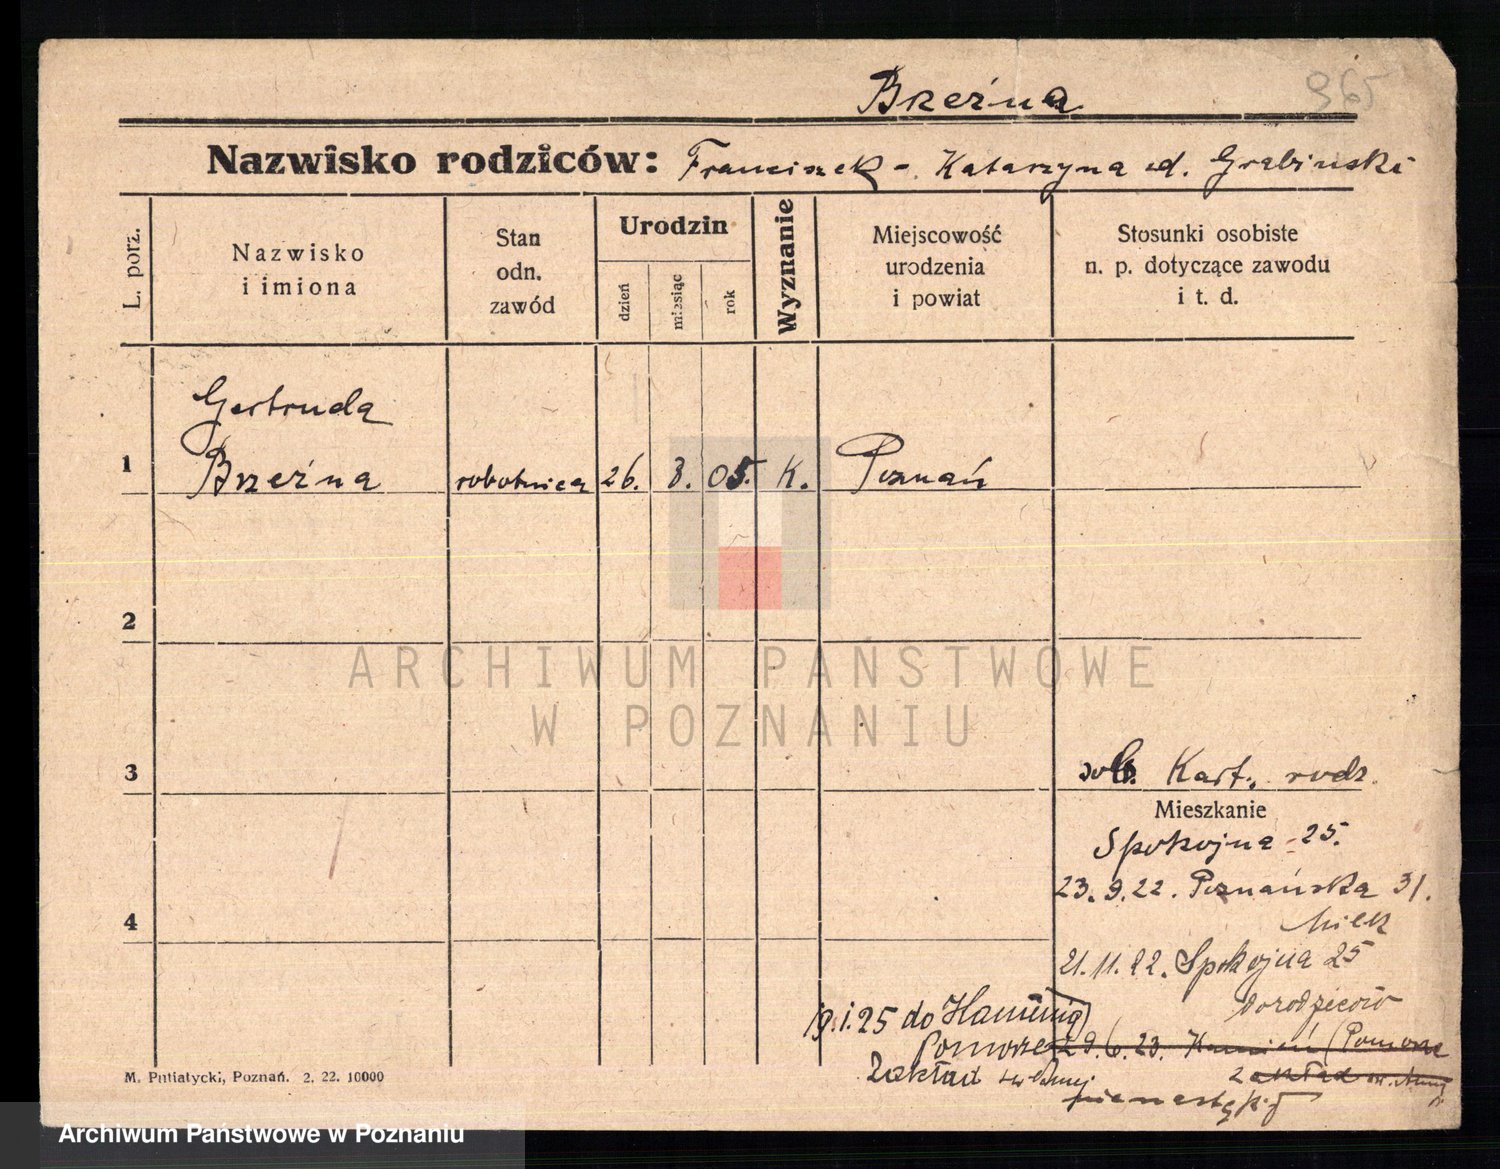 Brzeźna
965
Nazwisko rodziców: Franciszek - Katarzyna
L. porz.
Nazwisko
i imiona
Stan
odn.
zawód
Urodzin
dzień
miesiąc
rok
Wyznanie
Miejscowość
urodzenia
i powiat
Stosunki osobiste
n. p. dotyczące zawodu
i t. d.
Gertruda
1 Brzeźna robotnica 26. 3. 05. K. Poznań
2
ARCHIWUM PAŃSTWOWE
W POZNANIU
3
Kart. rodz.
Mieszkanie
Spokojna 25.
23. 9. 22. Poznańska 31.
4
21. 11. 22. Spokojna 25
do rodziców
do
29. 6. 23. Kamień (Pomorze
Zakład
zakład św. Anny
nie nastąpił
M. Putiatycki, Poznań. 2. 22. 10000
Archiwum Państwowe w Poznaniu